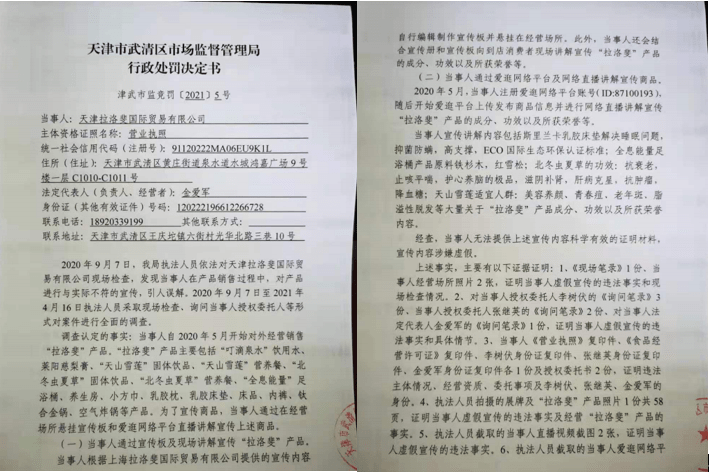 天津市武清区市场监督管理局
行政处罚决定书
津武市监竞罚〔2021〕5号
当事人：天津拉洛斐国际贸易有限公司
主体资格证照名称：营业执照
统一社会信用代码（注册号）：91120222MA06EU9K1L
住所（住址）：天津市武清区黄庄街道泉水道水域鸿嘉广场9号
楼一层C1010-C1011号
法定代表人（负责人、经营者）：金爱军
身份证（其他有效证件）号码：120222196612266728
联系电话：18920339199 其他联系方式：
联系地址：天津市武清区王庆坨镇六街村光华北路三巷10号
2020年9月7日，我局执法人员依法对天津拉洛斐国际贸
易有限公司现场检查，发现当事人在产品销售过程中，对产品
进行与实际不符的宣传，引人误解。2020年9月7日至2021年
4月16日执法人员采取现场检查、询问当事人授权委托人等形
式对案件进行全面的调查。
调查认定的事实：当事人自2020年5月开始对外经营销售
“拉洛斐”产品。“拉洛斐”产品主要包括“叮滴泉水”饮用水、
莱阳慈梨膏、“天山雪莲”固体饮品、“天山雪莲”营养餐、“北
冬虫夏草”固体饮品、“北冬虫夏草”营养餐、“全息能量”足
浴桶、养生房、小方巾、乳胶枕、乳胶床垫、床品、内裤、钛
合金锅、空气炸锅等产品。为了宣传商品，当事人通过在经营
场所悬挂宣传板和爱逛网络平台及网络直播讲解宣传上述商品。
（一）当事人通过宣传板及现场讲解宣传“拉洛斐”产品。
当事人根据上海拉洛斐国际贸易有限公司提供的宣传内容
自行编辑制作宣传板并悬挂在经营场所。此外，当事人还会结
合宣传册和宣传板向到店消费者现场讲解宣传“拉洛斐”产品
的成分、功效以及所获荣誉等。
（二）当事人通过爱逛网络平台及网络直播讲解宣传商品。
2020年5月，当事人注册爱逛网络平台账号(ID:87100193)，
随后开始爱逛平台上传发布商品信息并进行网络直播讲解宣传
“拉洛斐”产品的成分、功效以及所获荣誉等。
当事人宣传讲解内容包括斯里兰卡乳胶床垫解决睡眠问题，
抑菌防螨、高支撑、ECO国际生态环保认证标准；全息能量足
浴桶产品原料铁杉木，红雪松；北冬虫夏草的功效：抗衰老，
止咳平喘，护心养脑的极品，滋阴补肾，肝病克星，抗肿瘤、
降血糖；天山雪莲适宜人群：美容养颜、青春痘、老年斑、脂
溢性脱发等大量关于“拉洛斐”产品成分、功效以及所获荣誉
内容。
经查，当事人无法提供上述宣传内容科学有效的证明材料，
宣传内容涉嫌虚假。
上述事实，主要有以下证据证明：1、《现场笔录》1份、当
事人经营场所照片2张，证明当事人虚假宣传的违法事实和现
场检查情况。2、对当事人授权委托人李树伏的《询问笔录》3
份、当事人授权委托人张继英的《询问笔录》2份、对当事人法
定代表人金爱军的《询问笔录》1份，证明当事人虚假宣传的违
法事实和具体情节。3、当事人《营业执照》复印件、《食品经
营许可证》复印件、李树伏身份证复印件、张继英身份证复印
件、金爱军身份证复印件各1份及授权委托书2份，证明违法
主体情况，经营资质、委托事项及李树伏、张继英、金爱军的
身份。4、执法人员拍摄的展牌及“拉洛斐”产品照片1份共58
页，证明当事人虚假宣传的违法事实及经营“拉洛斐”产品的
事实。5、执法人员截取的当事人直播视频截图2张，证明当事
人虚假宣传的违法事实。6、执法人员截取的当事人爱逛网络平